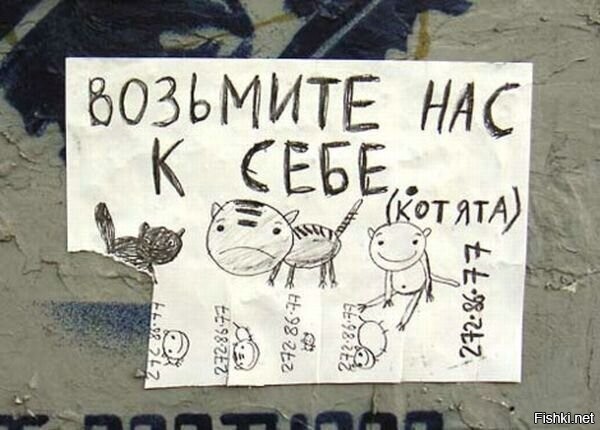 ВОЗЬМИТЕ НАС
К СЕБЕ.
(КОТЯТА)
272-86-77
272 86-77
272 86-77
272 86-77
272-86-77
Fishki.net